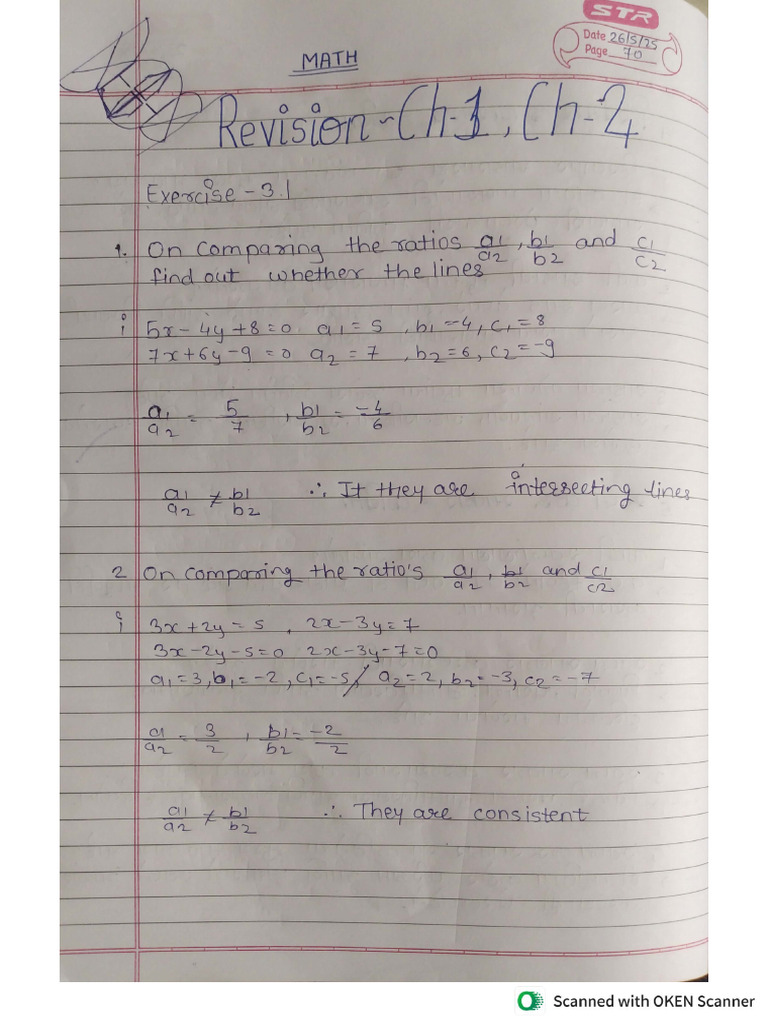 STR
Date 26/5/25
Page 70
MATH
Revision - Ch-1, Ch-2
Exercise - 3.1
1. On comparing the ratios a1/a2, b1/b2 and c1/c2
find out whether the lines
i 5x - 4y + 8 = 0 a1 = 5, b1 = -4, c1 = 8
7x + 6y - 9 = 0 a2 = 7, b2 = 6, c2 = -9
a1/a2 = 5/7, b1/b2 = -4/6
a1/a2 ≠ b1/b2 ∴ It they are intersecting lines
2 On comparing the ratio's a1/a2, b1/b2 and c1/c2
i 3x + 2y = 5, 2x - 3y = 7
3x - 2y - 5 = 0 2x - 3y - 7 = 0
a1 = 3, b1 = -2, c1 = -5 / a2 = 2, b2 = -3, c2 = -7
a1/a2 = 3/2, b1/b2 = -2/2
a1/a2 ≠ b1/b2 ∴ They are consistent
Scanned with OKEN Scanner